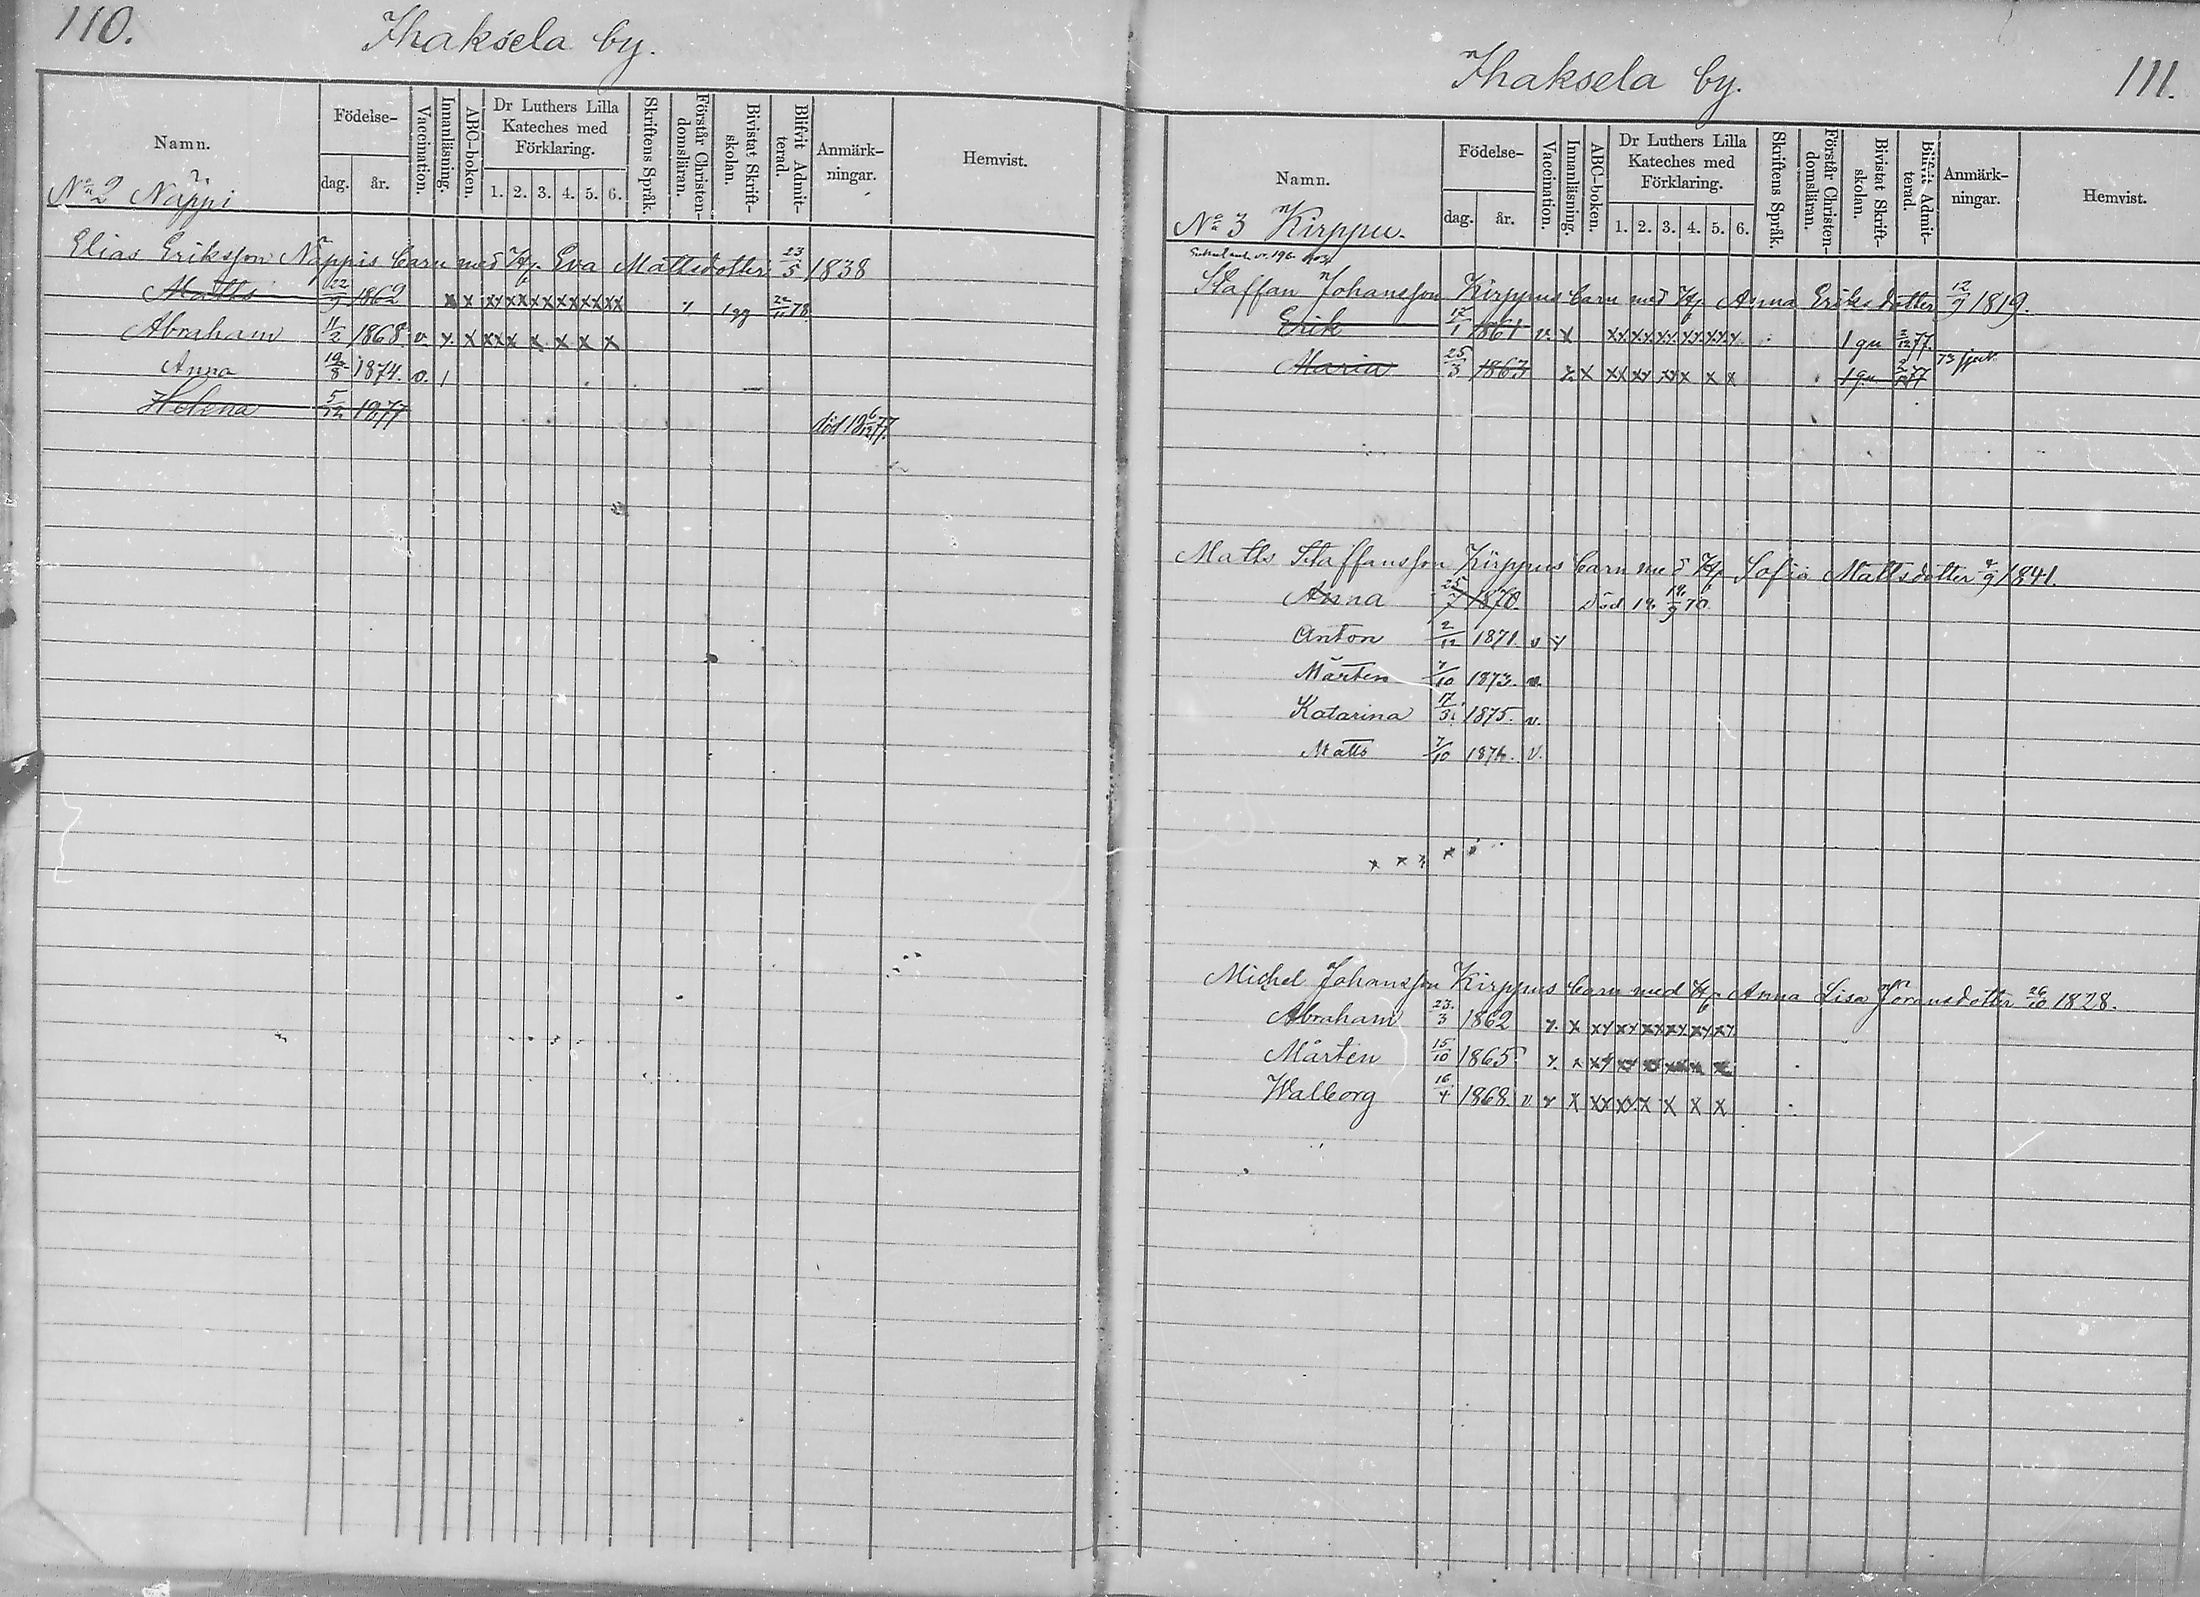 110.
Ihaksela by.
Namn.
Födelse-
dag.
år.
Vaccination.
Innanläsning.
ABC-boken.
Dr Luthers Lilla
Kateches med
Förklaring.
1. 2. 3. 4. 5. 6.
Skriftens Språk.
Förstår Christen-
domsläran.
Bivistat Skrift-
skolan.
Blifvit Admit-
terad.
Anmärk-
ningar.
Hemvist.
No 2 Näppi
Elias Eriksson Näppis barn med H. Eva Mattsdotter 23/5 1838
Matts 22/9 1862 x x xx xx xx xx xx xx 1 gg 22/11 78.
Abraham 11/2 1868 v. x x xx x x x x x
Anna 19/8 1874. v. /
Helena 5/12 1877 död 18 6/12 77.
Ihaksela by.
111.
Namn.
Födelse-
dag.
år.
Vaccination.
Innanläsning.
ABC-boken.
Dr Luthers Lilla
Kateches med
Förklaring.
1. 2. 3. 4. 5. 6.
Skriftens Språk.
Förstår Christen-
domsläran.
Bivistat Skrift-
skolan.
Blifvit Admit-
terad.
Anmärk-
ningar.
Hemvist.
No 3 Kirppu.
Staffan Johansson Kirppus barn med H. Anna Eriksdotter 12/9 1819.
Erik 17/1 1861 v. x xx xx xx xx xx xx 1 gn 2/12 77.
Maria 25/3 1863 x x xx xx xx x x x 1 gn 2/12 77
Matts Staffansson Kirppus barn med H. Sofia Mattsdotter 4/9 1841.
Anna 25/7 1870 Död 18 19/9 70.
Anton 2/12 1871. v x
Mårten 7/10 1873. v.
Katarina 17/3 1875. v.
Matts 7/10 1876. v.
x x x x x
Michel Johansson Kirppus barn med H. Anna Lisa Göransdotter 26/10 1828.
Abraham 23/3 1862 x. x xx xx xx xx xx xx
Mårten 15/10 1865. x x xx xx
Walborg 16/4 1868. v x x xx xx x x x x